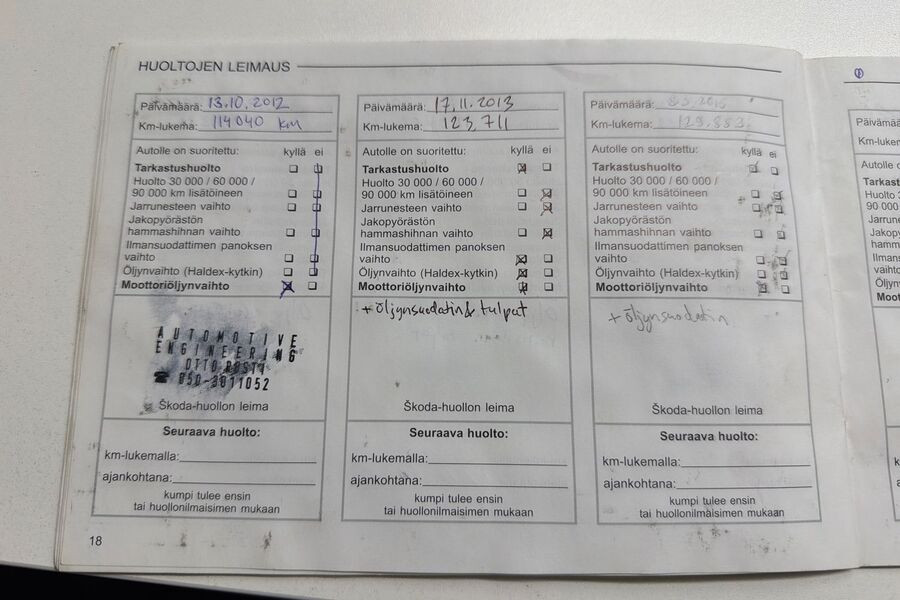 HUOLTOJEN LEIMAUS
Päivämäärä: 13.10.2012
Km-lukema: 114040 km
Autolle on suoritettu: kyllä ei
Tarkastushuolto
Huolto 30 000 / 60 000 /
90 000 km lisätöineen
Jarrunesteen vaihto
Jakopyörästön
hammashihnan vaihto
Ilmansuodattimen panoksen
vaihto
Öljynvaihto (Haldex-kytkin)
Moottoriöljynvaihto
AUTOMOTIVE
ENGINEERING
OTTO POSTI
☎ 050-3011052
Škoda-huollon leima
Seuraava huolto:
km-lukemalla:
ajankohtana:
kumpi tulee ensin
tai huollonilmaisimen mukaan
18
Päivämäärä: 17.11.2013
Km-lukema: 123711
Autolle on suoritettu: kyllä ei
Tarkastushuolto
Huolto 30 000 / 60 000 /
90 000 km lisätöineen
Jarrunesteen vaihto
Jakopyörästön
hammashihnan vaihto
Ilmansuodattimen panoksen
vaihto
Öljynvaihto (Haldex-kytkin)
Moottoriöljynvaihto
+ öljynsuodatin & tulpat
Škoda-huollon leima
Seuraava huolto:
km-lukemalla:
ajankohtana:
kumpi tulee ensin
tai huollonilmaisimen mukaan
Päivämäärä:
Km-lukema:
Autolle on suoritettu: kyllä ei
Tarkastushuolto
Huolto 30 000 / 60 000 /
90 000 km lisätöineen
Jarrunesteen vaihto
Jakopyörästön
hammashihnan vaihto
Ilmansuodattimen panoksen
vaihto
Öljynvaihto (Haldex-kytkin)
Moottoriöljynvaihto
+ öljynsuodatin
Škoda-huollon leima
Seuraava huolto:
km-lukemalla:
ajankohtana:
kumpi tulee ensin
tai huollonilmaisimen mukaan